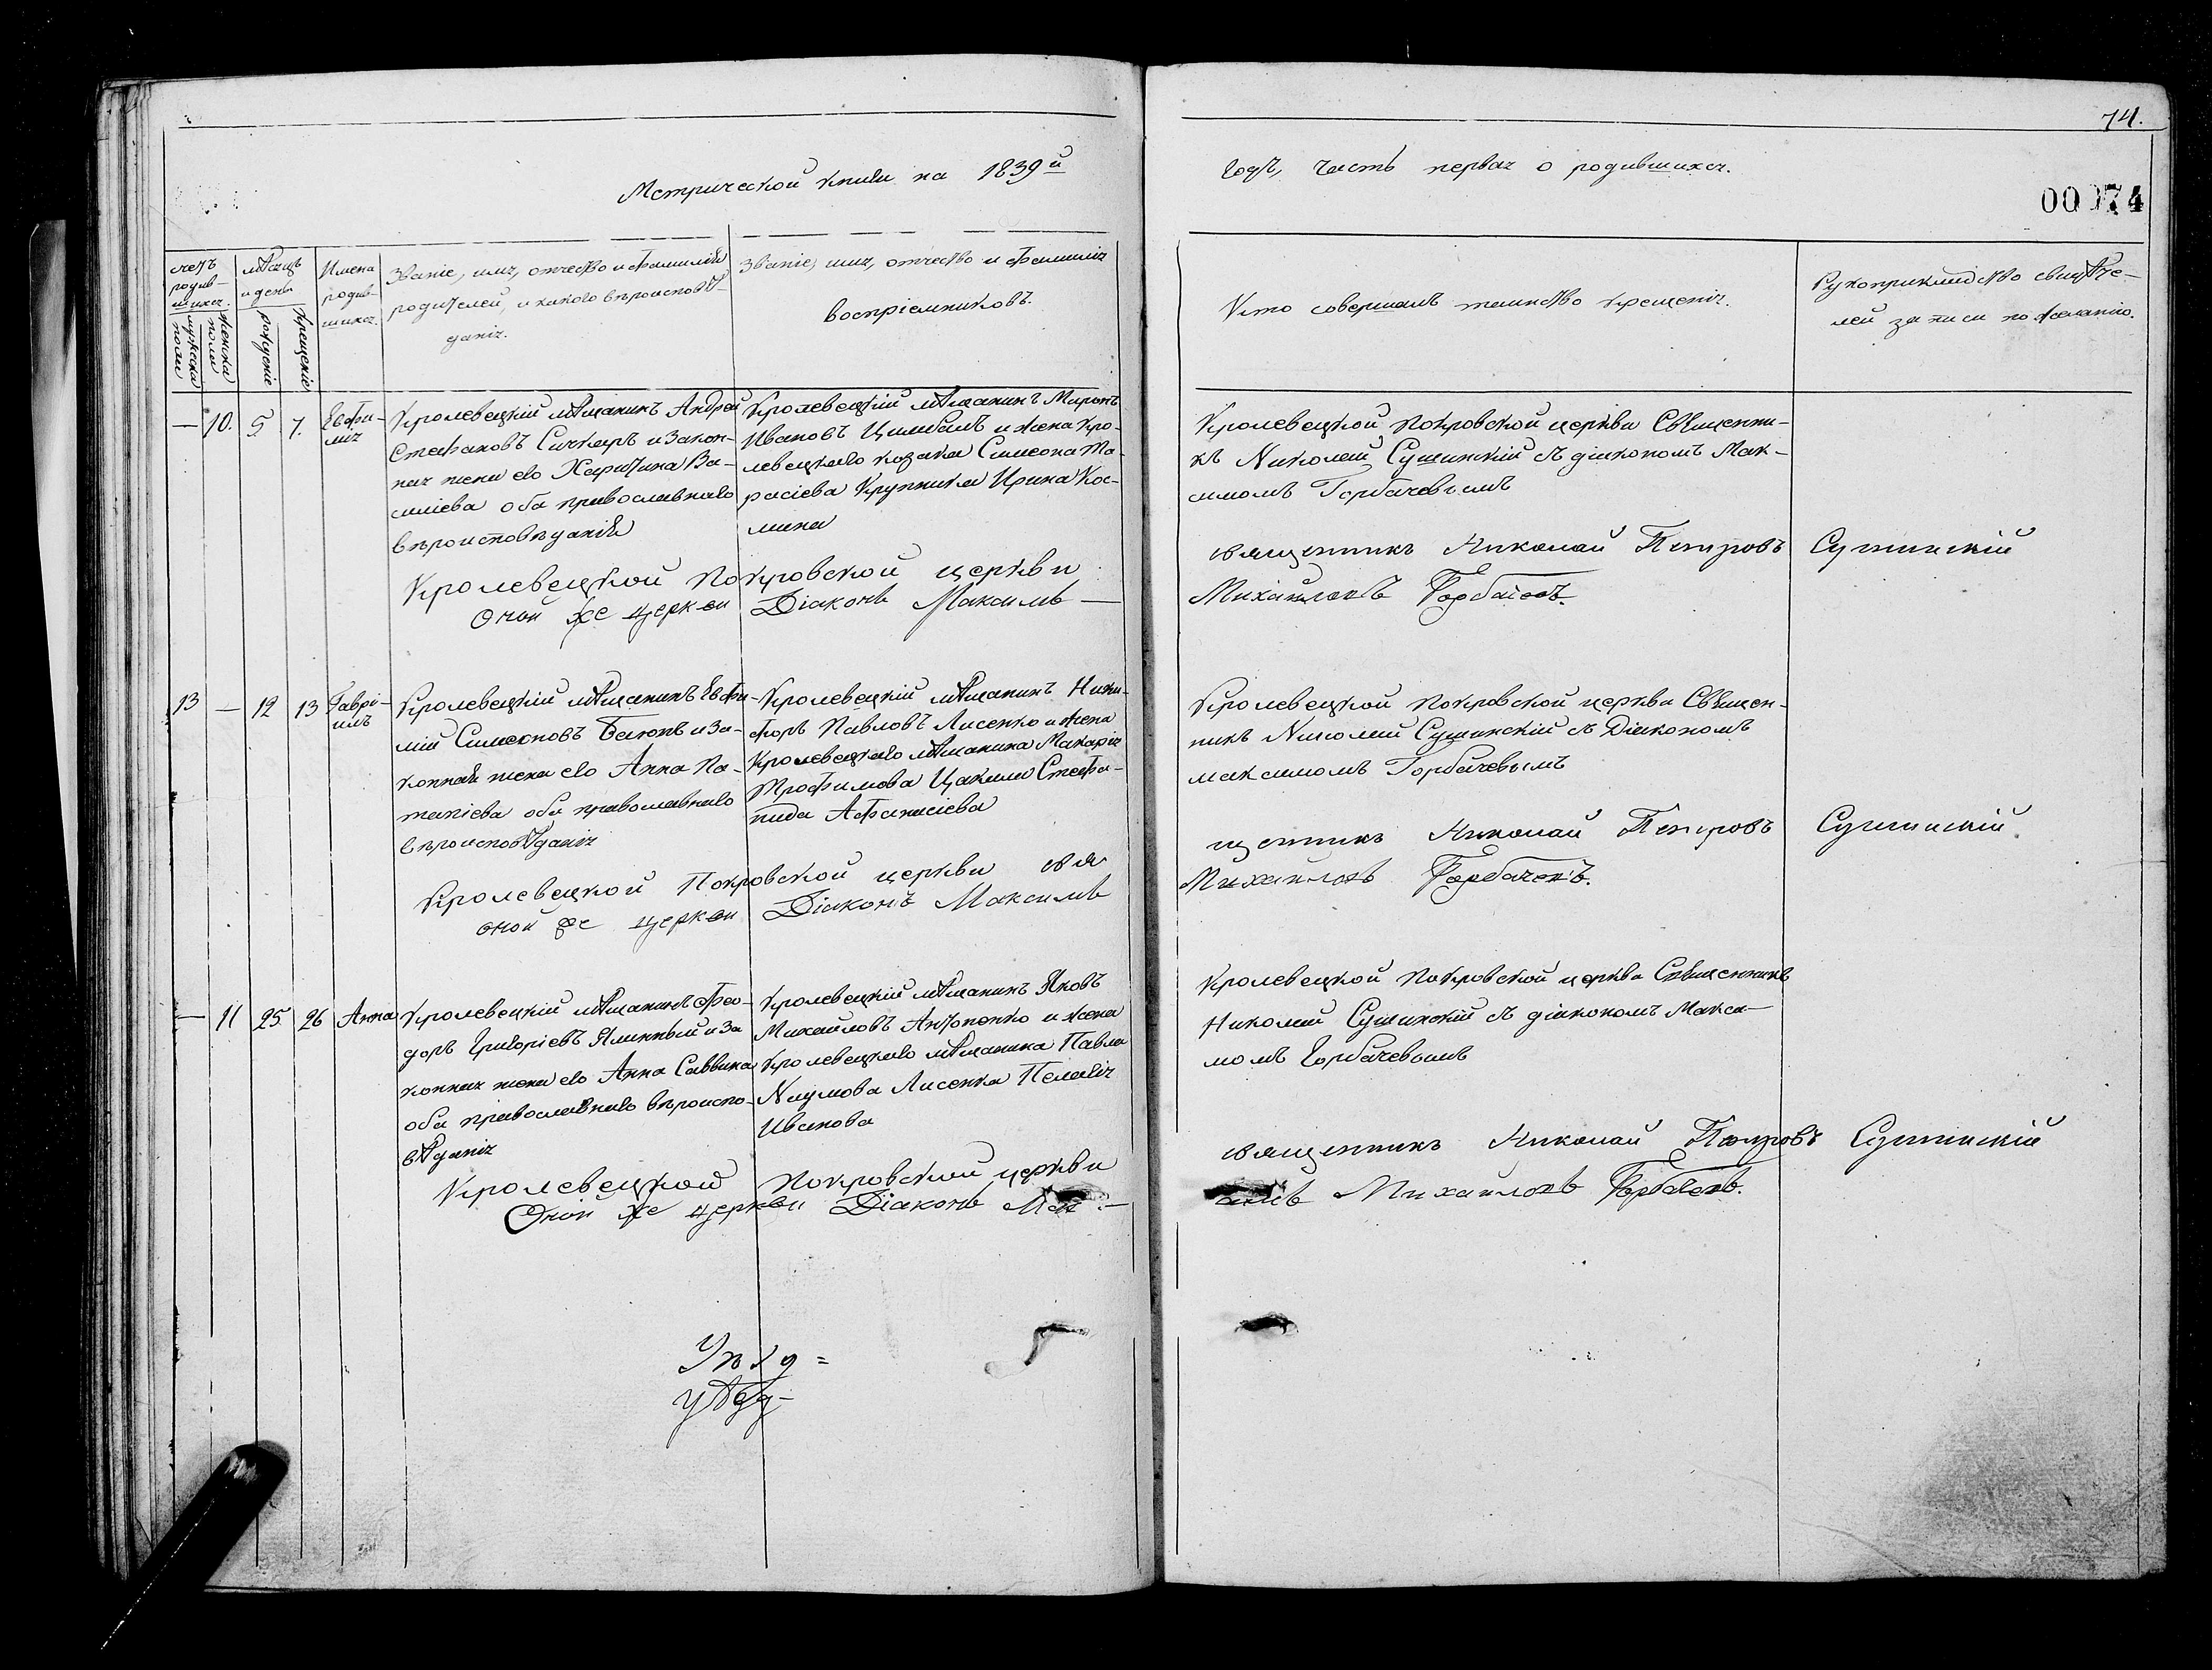 Метрической книги на 1839й
годъ, часть первая о родившихся.
74.
00074
счетъ родив-шихся.
мужеска пола
женска пола
мѣсяцъ и день
рожденіе
крещеніе
Имена родив-шихся.
Званіе, имя, отчество и фамилія
родителей, и какого вѣроисповѣ-
данія.
Званіе, имя, отчество и фамилія
воспріемниковъ.
Кто совершалъ таинство крещенія.
Рукоприкладство свидѣте-
лей записи по желанію.
— 10. 5 7. Евфи-
мія
Кролевецкій мѣщанинъ Андрей
Стефановъ Сичкаръ и закон-
ная жена его Харитина Ва-
силіева оба православнаго
вѣроисповѣданія
Кролевецкій мѣщанинъ Миронъ
Ивановъ Цимбалъ и жена Кро-
левецкаго козака Симеона Та-
расіева Крупника Ирина Кос-
мина
Кролевецкой Покровской церкви Священни-
къ Николай Сушинскій съ діакономъ Мак-
симомъ Горбачевымъ
Кролевецкой Покровской церкви священникъ Николай Петровъ Сушинскій
Оной же церкви Діаконъ Максимъ — Михайловъ Горбачевъ.
13 — 12 13 Гаврі-
илъ
Кролевецкій мѣщанинъ Евфи-
мій Симеоновъ Батюкъ и за-
конная жена его Анна По-
тапіева оба православнаго
вѣроисповѣданія
Кролевецкій мѣщанинъ Ники-
форъ Павловъ Лисенко и жена
Кролевецкаго мѣщанина Макарія
Трофимова Цакали Стефа-
нида Афанасіева
Кролевецкой Покровской церкви Священ-
никъ Николай Сушинскій съ Діакономъ
максимомъ Горбачевымъ
Кролевецкой Покровской церкви свя щенникъ Николай Петровъ Сушинскій.
оной же церкви Діаконъ Максимъ Михайловъ Горбачевъ.
— 11 25 26 Анна
Кролевецкій мѣщанинъ Фео-
доръ Григоріевъ Ялинный и за
конная жена его Анна Саввина
оба православнаго вѣроиспо-
вѣданія
Кролевецкій мѣщанинъ Яковъ
Михайловъ Антоненко и жена
Кролевецкаго мѣщанина Павла
Наумова Лисенка Пелагія
Иванова
Кролевецкой Покровской церкви Священникъ
Николай Сушинскій съ діакономъ Макси-
момъ Горбачевымъ
Кролевецкой Покровской церкви священникъ Николай Петровъ Сушинскій
Оной же церкви Діаконъ Мак — симъ Михайловъ Горбачевъ.